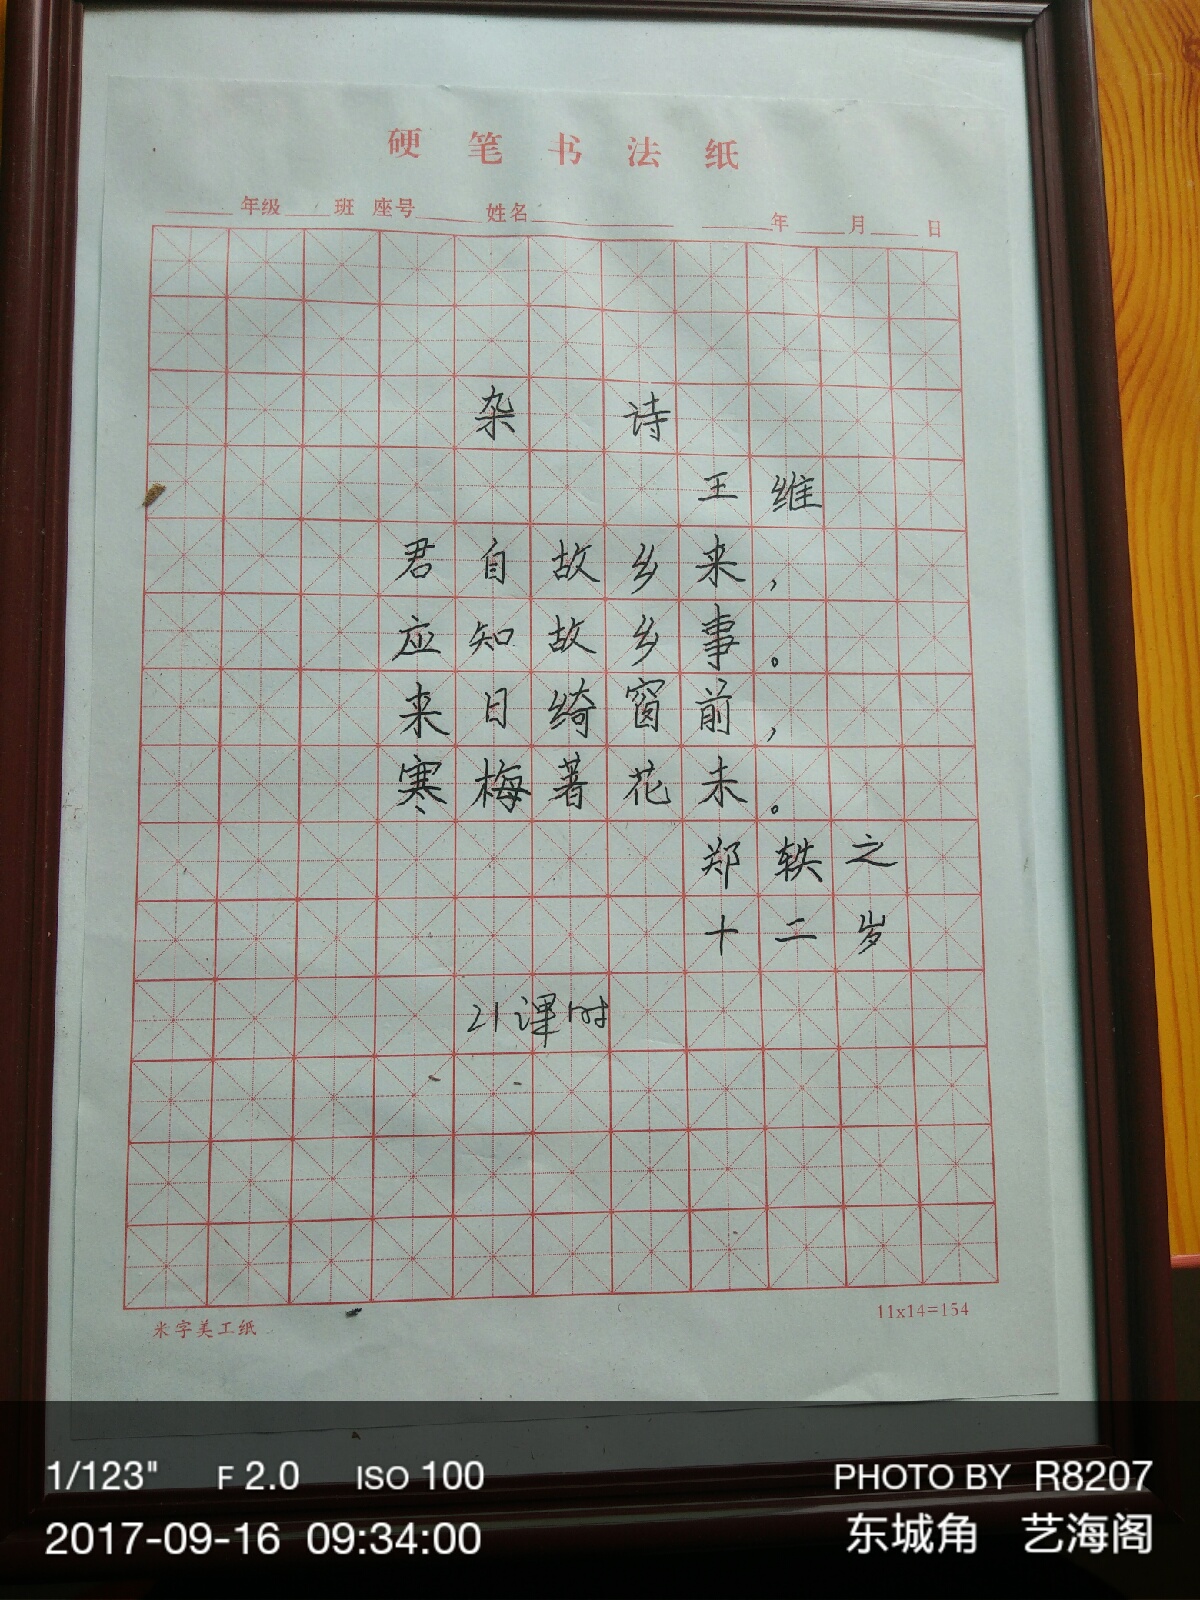 硬笔书法纸
年级 班 座号 姓名 年 月 日
杂 诗
王维
君自故乡来，
应知故乡事。
来日绮窗前，
寒梅著花未。
郑轶之
十二岁
21课时
米字美工纸 11x14=154
1/123" F 2.0 ISO 100 PHOTO BY R8207
2017-09-16 09:34:00 东城角 艺海阁